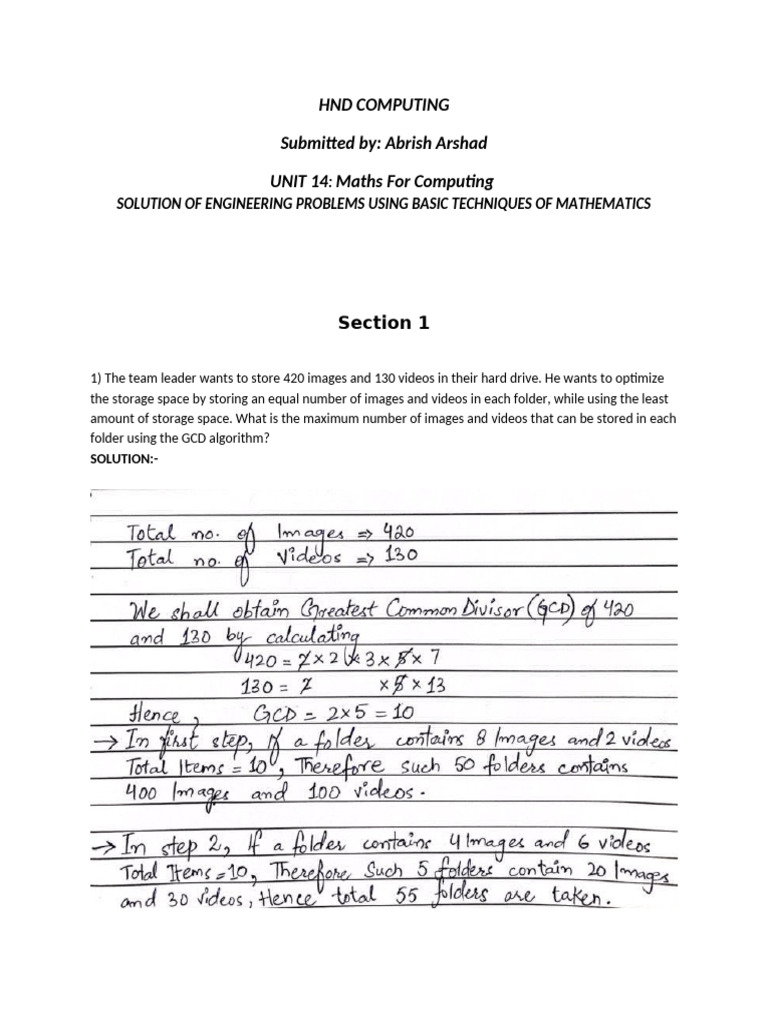 HND COMPUTING
Submitted by: Abrish Arshad
UNIT 14: Maths For Computing
SOLUTION OF ENGINEERING PROBLEMS USING BASIC TECHNIQUES OF MATHEMATICS
Section 1
1) The team leader wants to store 420 images and 130 videos in their hard drive. He wants to optimize
the storage space by storing an equal number of images and videos in each folder, while using the least
amount of storage space. What is the maximum number of images and videos that can be stored in each
folder using the GCD algorithm?
SOLUTION:-
Total no. of Images => 420
Total no. of Videos => 130
We shall obtain Greatest Common Divisor (GCD) of 420
and 130 by calculating
420 = 2 x 2 x 3 x 5 x 7
130 = 2 x 5 x 13
Hence, GCD = 2x5 = 10
→ In first step, If a folder contains 8 Images and 2 videos
Total Items = 10, Therefore such 50 folders contains
400 Images and 100 videos.
→ In step 2, If a folder contains 4 Images and 6 videos
Total Items = 10, Therefore Such 5 folders contain 20 Images
and 30 videos, Hence total 55 folders are taken.